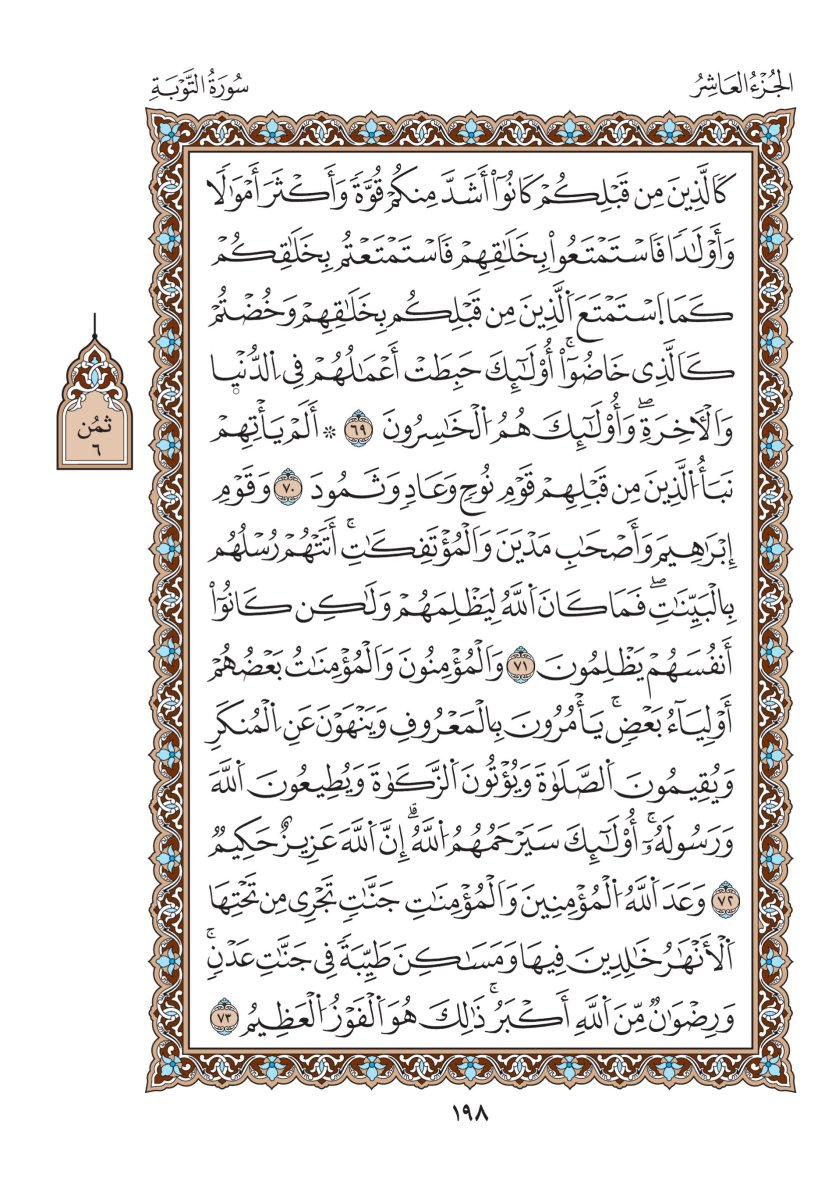 الجُزْءُ العَاشِرُ
سُورَةُ التَّوْبَةِ
كَالَّذِينَ مِن قَبْلِكُمْ كَانُوٓاْ أَشَدَّ مِنكُمْ قُوَّةٗ وَأَكْثَرَ أَمْوَٰلٗا
وَأَوْلَٰدٗا فَاسْتَمْتَعُواْ بِخَلَٰقِهِمْ فَاسْتَمْتَعْتُم بِخَلَٰقِكُمْ
كَمَا اَسْتَمْتَعَ اَلَّذِينَ مِن قَبْلِكُم بِخَلَٰقِهِمْ وَخُضْتُمْ
كَالَّذِي خَاضُوٓاْۚ أُوْلَٰٓئِكَ حَبِطَتْ أَعْمَٰلُهُمْ فِي اِلدُّنْيَا
وَالْأٓخِرَةِۖ وَأُوْلَٰٓئِكَ هُمُ اُلْخَٰسِرُونَ ٦٩ ۞ أَلَمْ يَأْتِهِمْ
نَبَأُ اُلَّذِينَ مِن قَبْلِهِمْ قَوْمِ نُوحٖ وَعَادٖ وَثَمُودَ ٧٠ وَقَوْمِ
إِبْرَٰهِيمَ وَأَصْحَٰبِ مَدْيَنَ وَالْمُؤْتَفِكَٰتِۚ أَتَتْهُمْ رُسْلُهُم
بِالْبَيِّنَٰتِۖ فَمَا كَانَ اَللَّهُ لِيَظْلِمَهُمْ وَلَٰكِن كَانُوٓاْ
أَنفُسَهُمْ يَظْلِمُونَ ٧١ وَالْمُؤْمِنُونَ وَالْمُؤْمِنَٰتُ بَعْضُهُمْ
أَوْلِيَآءُ بَعْضٖۚ يَأْمُرُونَ بِالْمَعْرُوفِ وَيَنْهَوْنَ عَنِ اِلْمُنكَرِ
وَيُقِيمُونَ اَلصَّلَوٰةَ وَيُؤْتُونَ اَلزَّكَوٰةَ وَيُطِيعُونَ اَللَّهَ
وَرَسُولَهُۥٓۚ أُوْلَٰٓئِكَ سَيَرْحَمُهُمُ اُللَّهُۗ إِنَّ اَللَّهَ عَزِيزٌ حَكِيمٞ
٧٢ وَعَدَ اَللَّهُ اُلْمُؤْمِنِينَ وَالْمُؤْمِنَٰتِ جَنَّٰتٖ تَجْرِي مِن تَحْتِهَا
اَلْأَنْهَٰرُ خَٰلِدِينَ فِيهَا وَمَسَٰكِنَ طَيِّبَةٗ فِي جَنَّٰتِ عَدْنٖۚ
وَرِضْوَٰنٞ مِّنَ اَللَّهِ أَكْبَرُۚ ذَٰلِكَ هُوَ اَلْفَوْزُ اُلْعَظِيمُ ٧٣
ثُمُن
٦
١٩٨